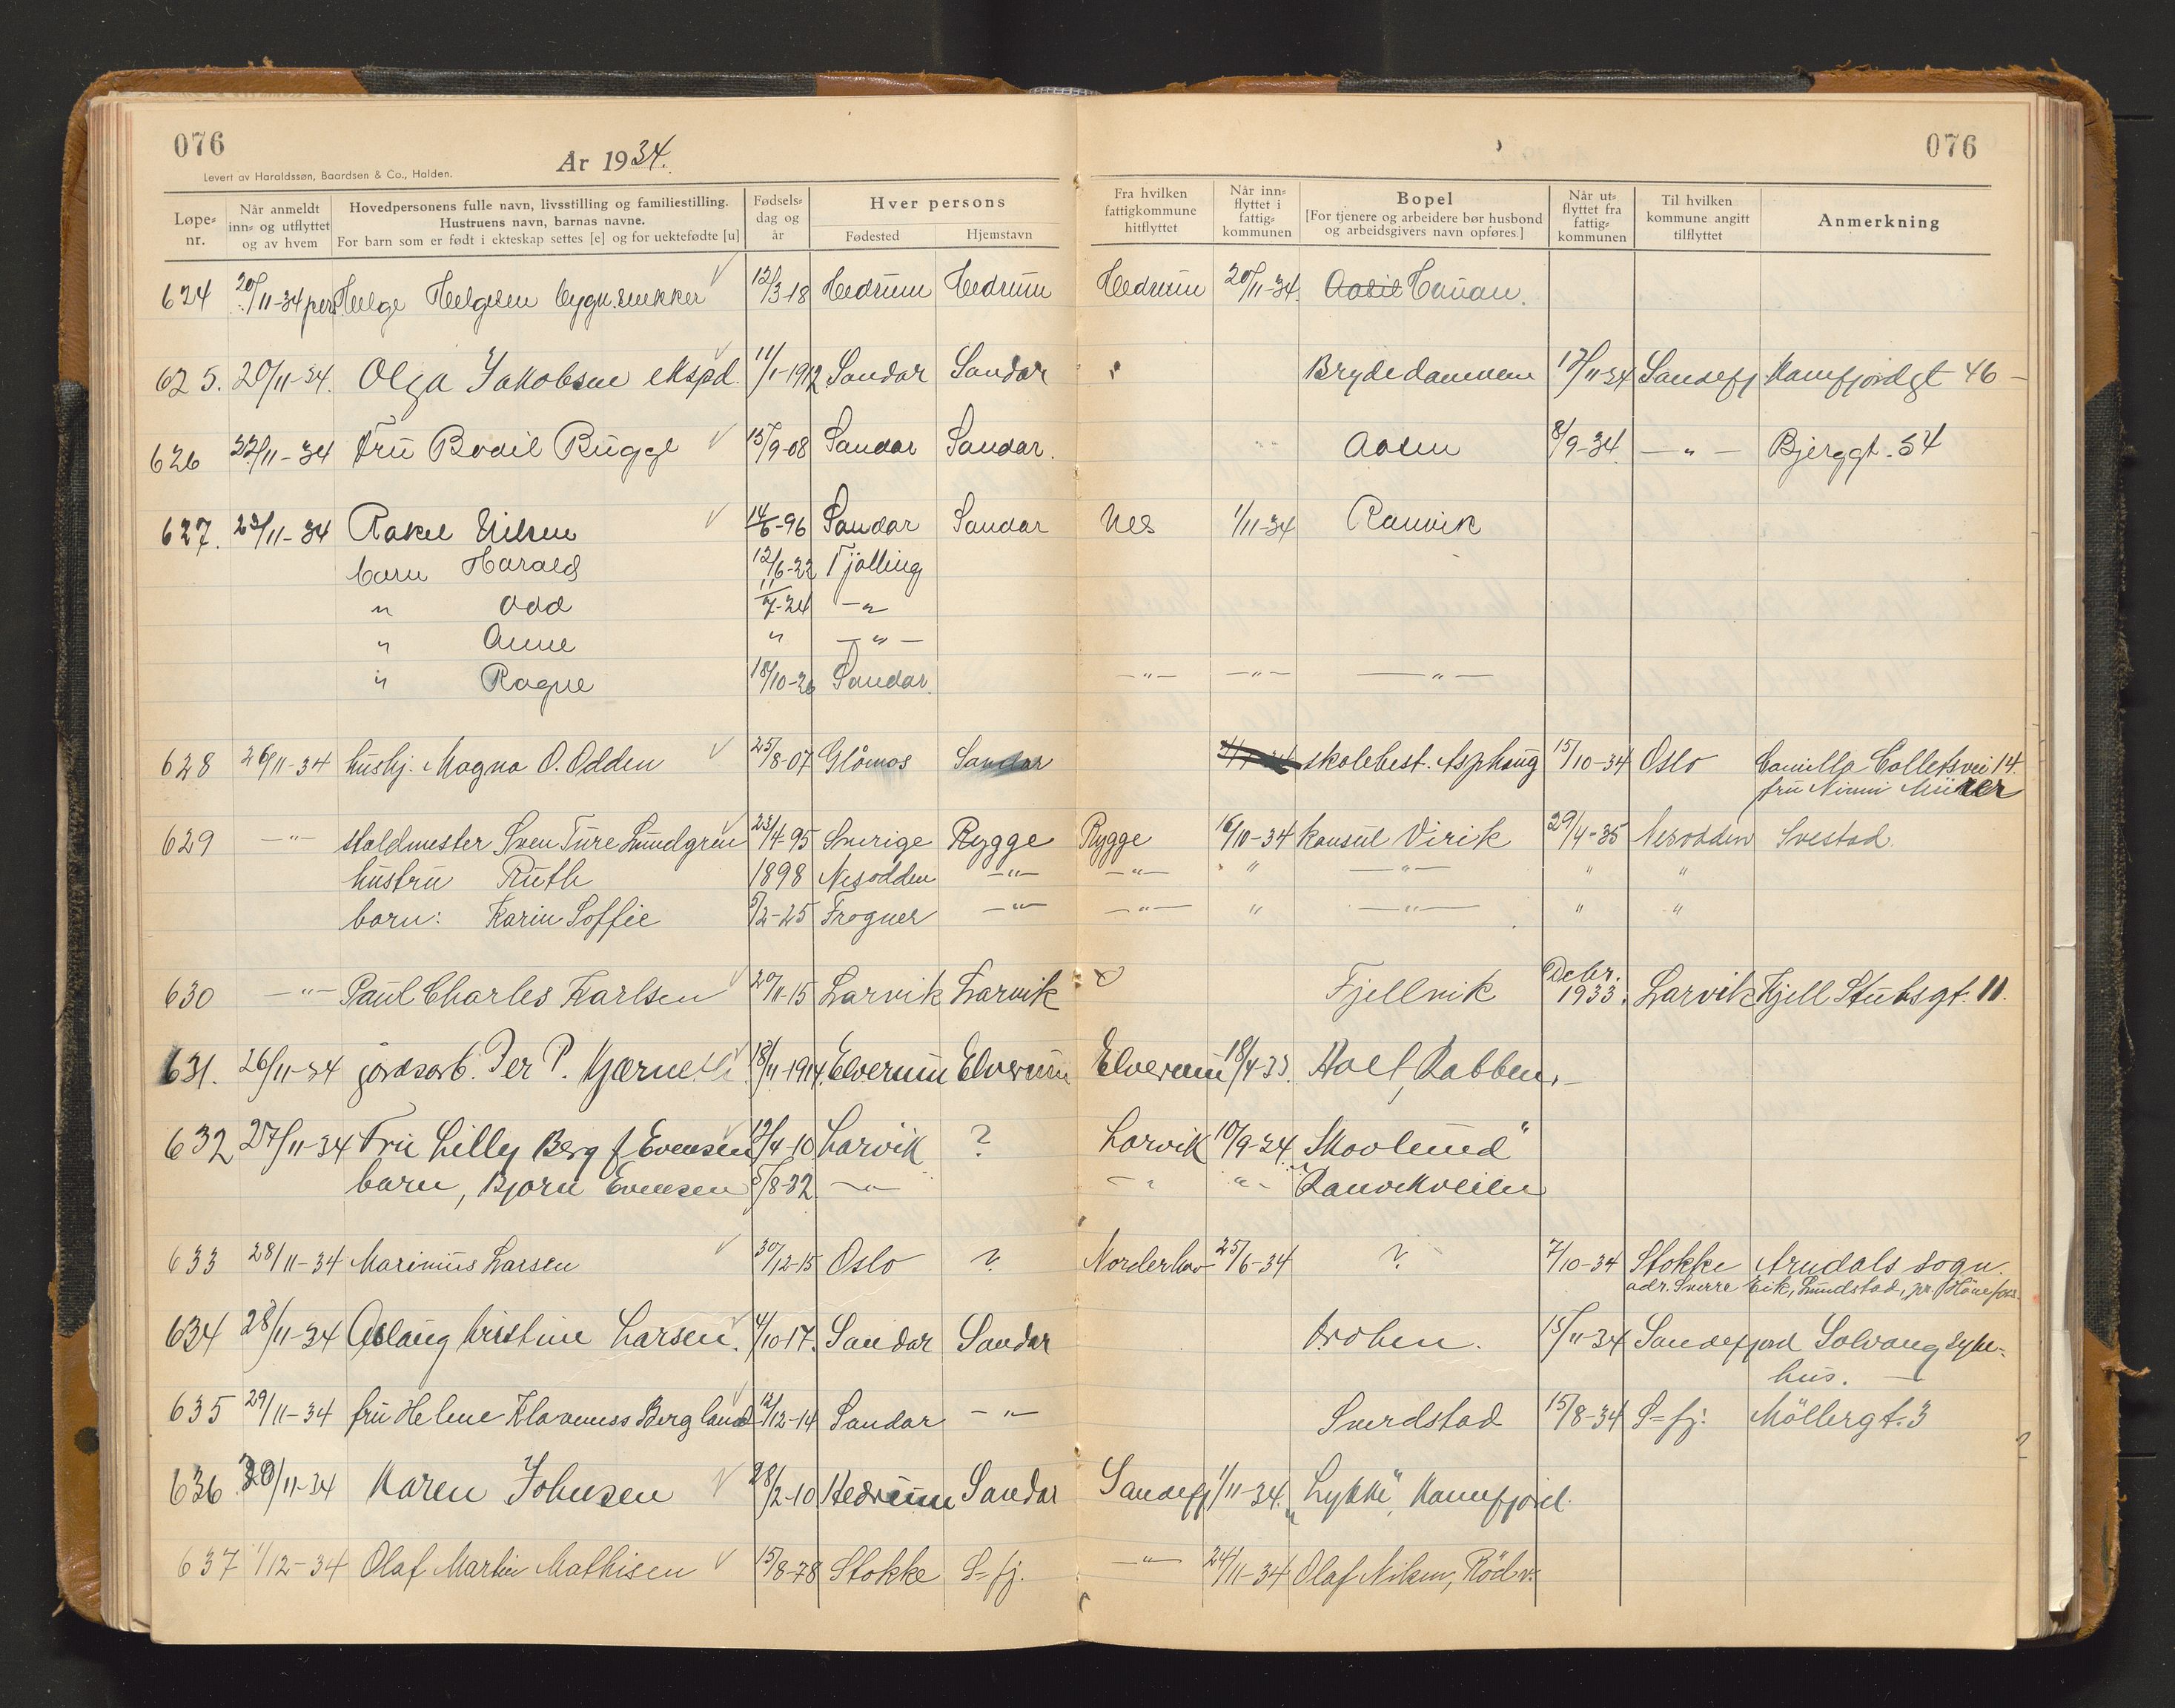 076
År 1934.
Levert av Haraldssøn, Baardsen & Co., Halden.
076
Løpe-nr. Når anmeldt inn- og utflyttet og av hvem Hovedpersonens fulle navn, livsstilling og familiestilling. Hustruens navn, barnas navne. For barn som er født i ekteskap settes [e] og for uektefødte [u] Fødsels-dag og år Hver persons Fødested Hjemstavn Fra hvilken fattigkommune hitflyttet Når inn-flyttet i fattig-kommunen Bopel [For tjenere og arbeidere bør husbond og arbeidsgivers navn opføres.] Når ut-flyttet fra fattig-kommunen Til hvilken kommune angitt tilflyttet Anmerkning
624 20/11-34 pers Helge Helgesen bygn.snekker 12/3-18 Hedrum Hedrum Hedrum 20/11-34. Hauan.
625. 20/11-34. Olga Jakobsen ekspd. 11/1-1912 Sandar Sandar Brydedammen 17/11-34 Sandefj Kamfjordgt 46 -
626 22/11-34 Fru Bodil Bugge 15/9-08 Sandar Sandar. Aasen 8/9-34 - " - Bjerggt. 54
627. 23/11-34 Rakel Nilsen 14/6-96 Sandar Sandar Nes 1/11-34 Ranvik
barn Harald 12/6-22 Tjølling
" Odd 11/7-24 - "
" Anne " - " -
" Ragne 18/10-26 Sandar. - " - - " - - " -
628 26/11-34 hushj. Magna O. Odden 25/8-07 Glåmos Sandar skolebest. Asphaug 15/10-34 Oslo Camilla Colletsvei 14.
fru Nimi Müller
629 - " - staldmester Sven Ture Lundgren 23/4-95 Sverige Rygge Rygge 16/10-34 konsul Virik 29/4-35 Nesodden Svestad.
hustru Ruth 1898 Nesodden - " - - " - " - " - " "
barn: Karin Soffie 5/2-25 Frogner - " - - " - " - " - " "
630 - " - Paul Charles Karlsen 20/11-15 Larvik Larvik Fjellvik Decbr. 1933. Larvik Kjell Stubsgt. 11.
631. 26/11-34 jordsarb. Per P. 18/11-1914. Elverum Elverum Elverum 18/4-33. Hoel, Rabben. -
632 27/11-34 Fru Lilly Berg f Evensen 12/4-10 Larvik ? Larvik 10/9-34 "Skovlund"
barn, Bjørn Evensen 5/8-32 - " - " - " - Ranvikveien
633 28/11-34 Marinius Larsen 30/12-15 Oslo ? Norderhov 25/6-34 ? 7/10-34 Stokke Arndals sogn.
adr. Sverre Eik, Lundstad, pr. Hönefoss.
634 28/11-34 Aslaug Kristine Larsen. 4/10-17. Sandar Sandar Broben. 15/11-34 Sandefjord Solvang syke-
hus. -
635 29/11-34 fru Helene Klaveness Bergland 12/12-14 Sandar - " - Snerdstad 15/8-34 S=fj. Möllergt. 3
636 30/11-34 Karen Johnsen 28/2-10 Hedrum Sandar Sandefj 1/11-34. "Lykke", Kamfjord.
637 1/12-34 Olaf Martin Mathisen 15/8-78 Stokke S=fj. - " - 24/11-34 Olaf Nilsen, Rödv.